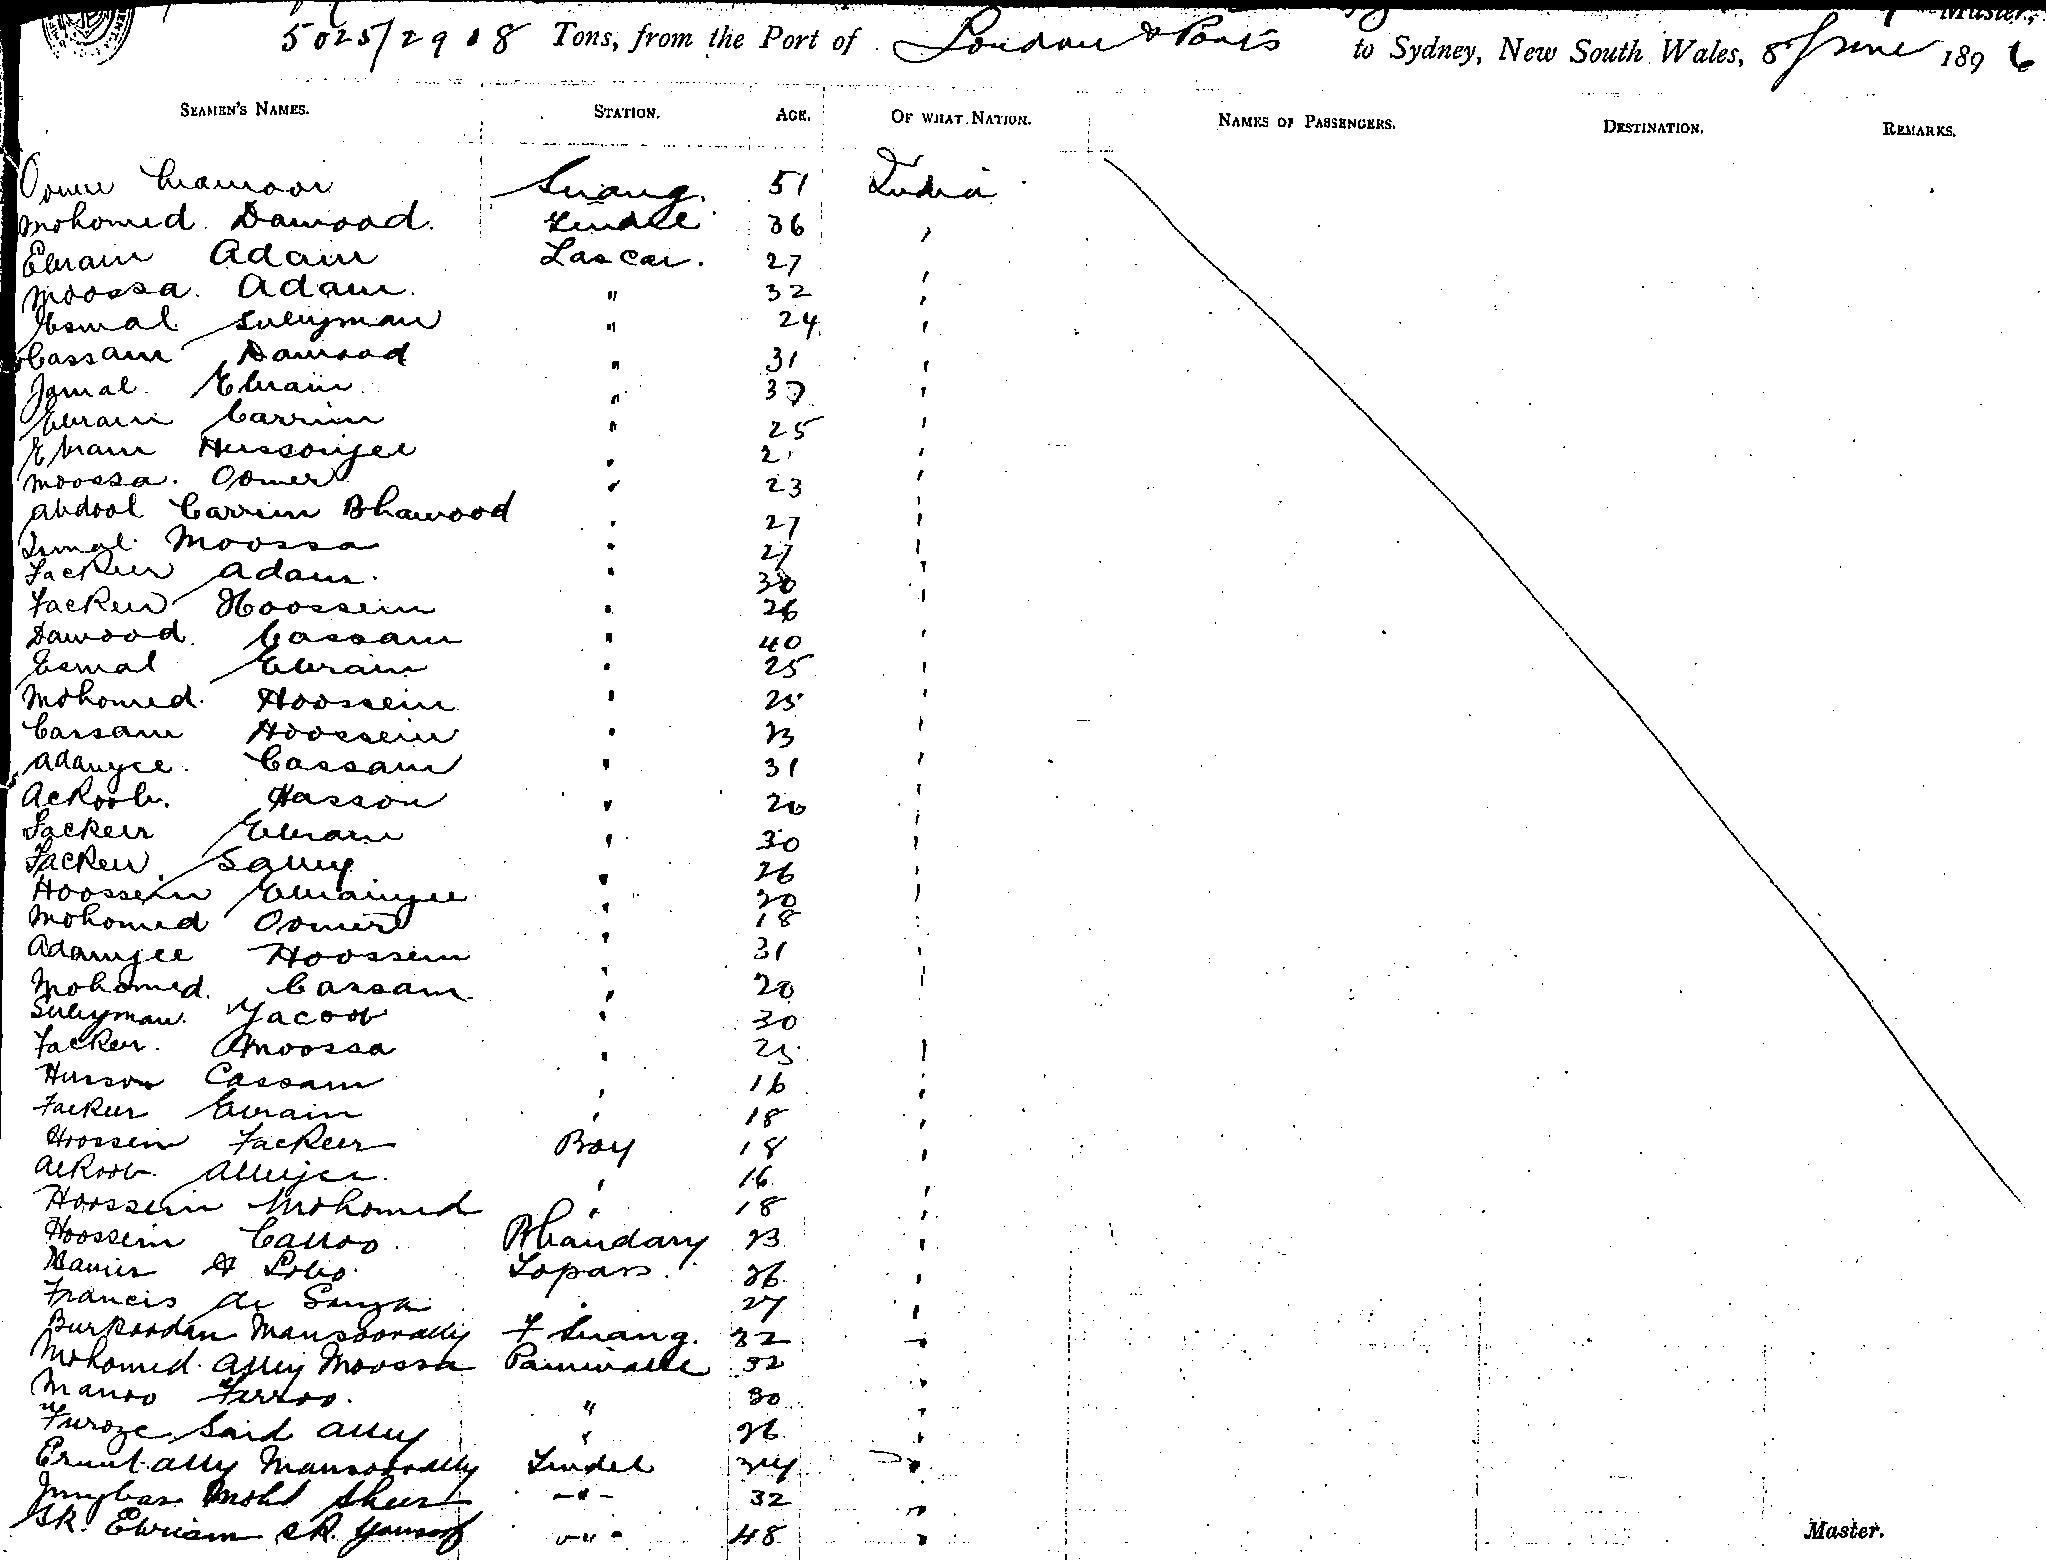 Master,
5025/2908 Tons, from the Port of London & Ports to Sydney, New South Wales, 8 June 1896
SEAMEN'S NAMES. STATION. AGE. OF WHAT NATION. NAMES OF PASSENGERS. DESTINATION. REMARKS.
Oomer Serang. 51 India
Mohomed Dawood. Tindal 36 "
Ebraim Adam Lascar. 27 "
Moossa. Adam. " 32 "
Esmal Suleyman " 24 "
Cassam Dawood " 31 "
Jamal Ebraim " 37 "
Ebraim Carrim " 25 "
Ebraim Hussonjee " "
Moossa. Oomer " 23 "
Abdool Carrim Bhawood " 27 "
Ismal Moossa " 27 "
Fackeer Adam. " 30 "
Fackeer Hoossein " 26 "
Dawood. Cassam " 40 "
Esmal Ebraim " 25 "
Mohomed. Hoossein " 25 "
Cassam Hoossein " 23 "
Adamjee. Cassam " 31 "
Ackoob. Hasson " 20 "
Fackeer Ebraim " 30 "
Fackeer " 26 "
Hoossein Ebraimjee " 20 "
Mohomed Oomer " 18 "
Adamjee Hoossein " 31 "
Mohomed. Cassam " 20 "
Suleyman. Yacoob " 30 "
Fackeer. Moossa " 25 "
Husson Cassam " 16 "
Fackeer Ebraim " 18 "
Hoossein Fackeer Boy 18 "
Ackoob. Alleejee. " 16 "
Hoossein Mohomed " 18 "
Hoossein Bhandary 23 "
Xavier A Lobo. Topass. 26 "
Francis de Souza 27 "
Burkoodan Mansoorally F Serang. 32 "
Mohomed. Ally Moossa Paniwalle 32 "
Feroze Said Ally " 26 "
Mansoorally Tindel 34 "
Mohd Sheer " 32 "
Sk. Ebriam Sk. Yousoof " 48 "
Master.